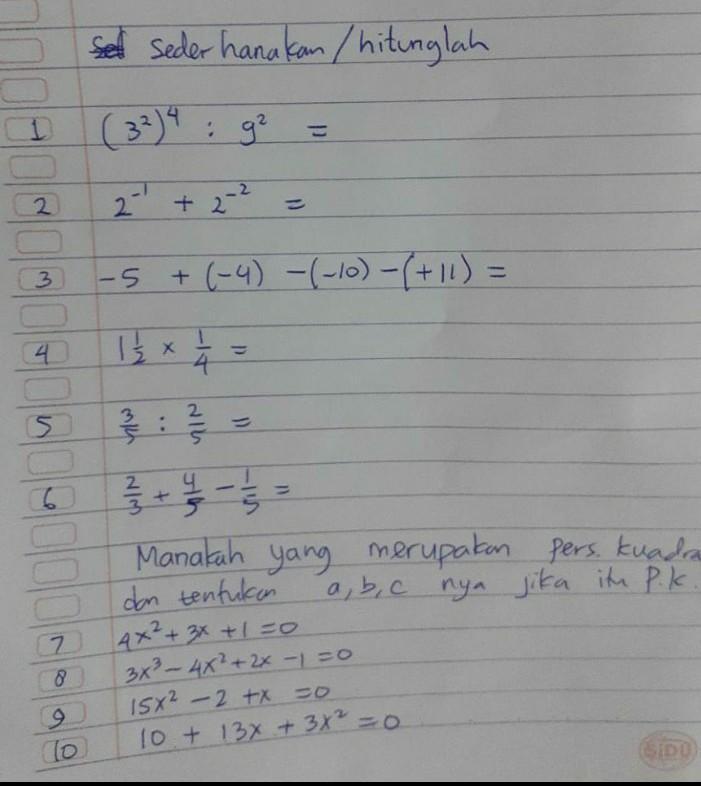 Sederhanakan/hitunglah
1 (3²)⁴ : 9² =
2 2⁻¹ + 2⁻² =
3 -5 + (-4) -(-10) -(+11) =
4 1 1/2 × 1/4 =
5 3/5 : 2/5 =
6 2/3 + 4/5 - 1/5 =
Manakah yang merupakan Pers. kuadra
dan tentukan a, b, c nya jika itu P.k.
7 4x² + 3x + 1 = 0
8 3x³ - 4x² + 2x - 1 = 0
9 15x² - 2 + x = 0
10 10 + 13x + 3x² = 0
SIDU